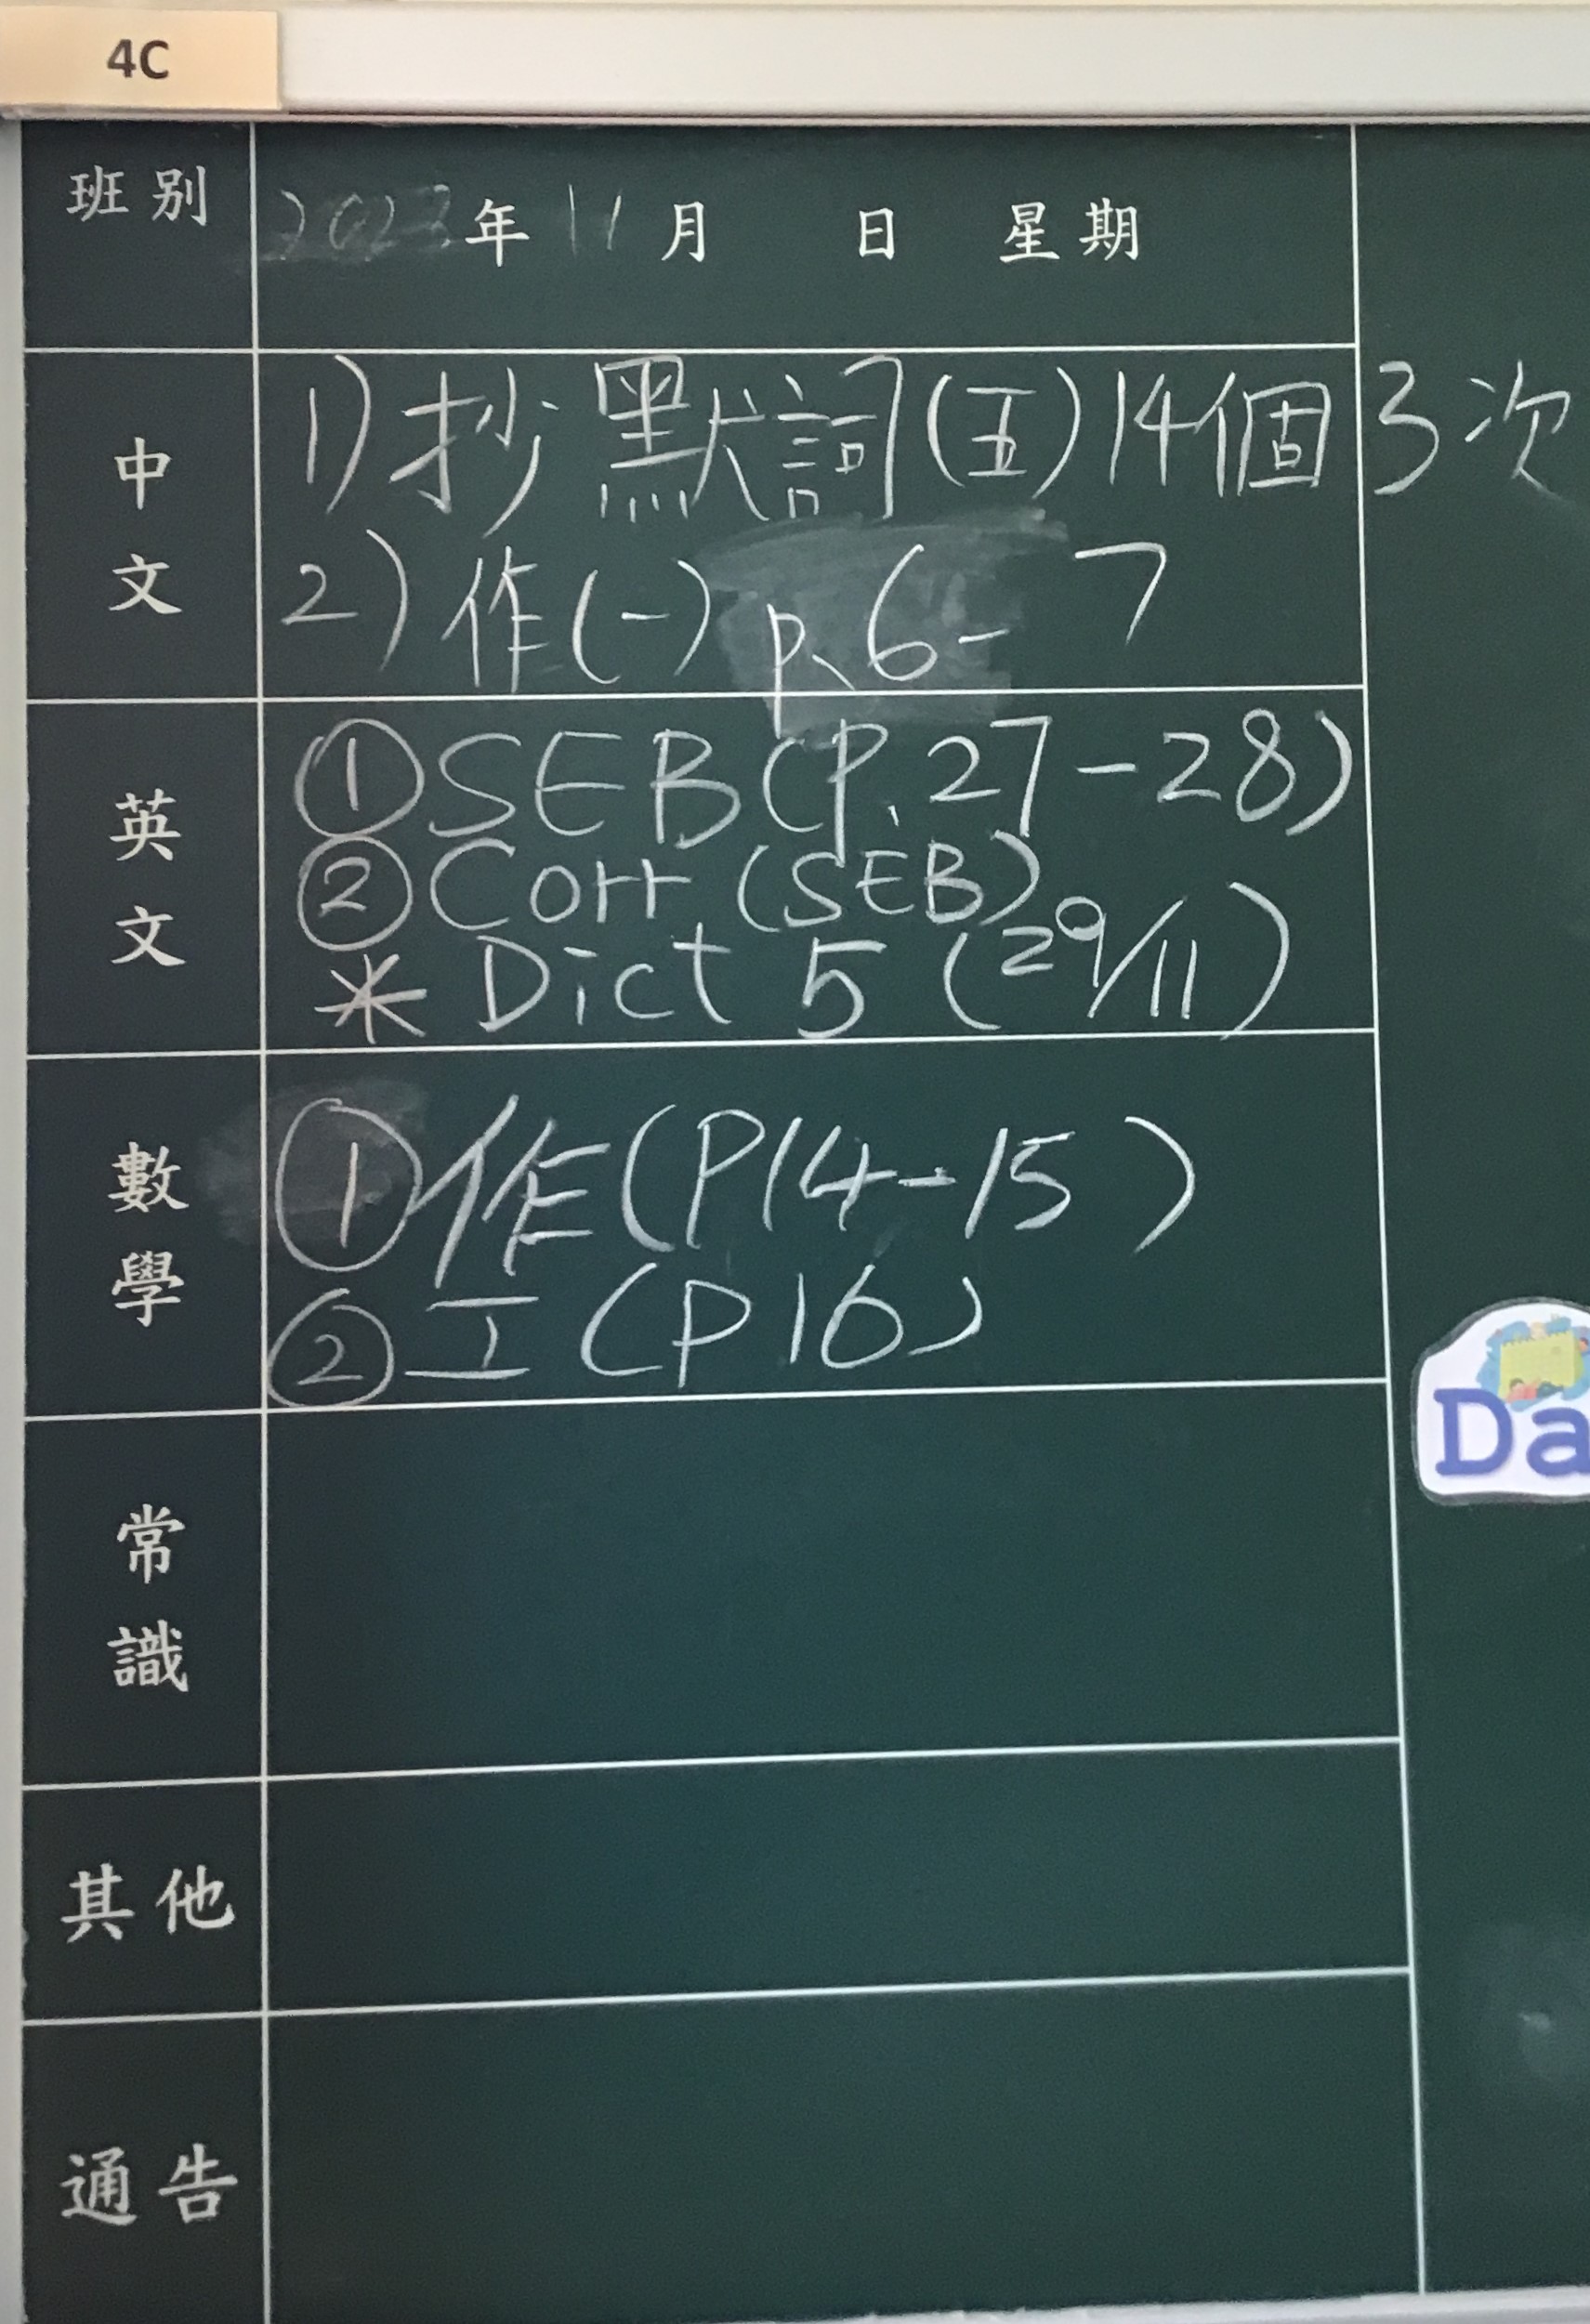 4C
班別 2023年11月 日 星期
中文
1) 抄默詞(五)14個3次
2) 作(一) p.6-7
英文
① SEB (P.27-28)
② Corr (SEB)
* Dict 5 (29/11)
數學
① 作(P14-15)
② 工(P16)
常識
Da
其他
通告